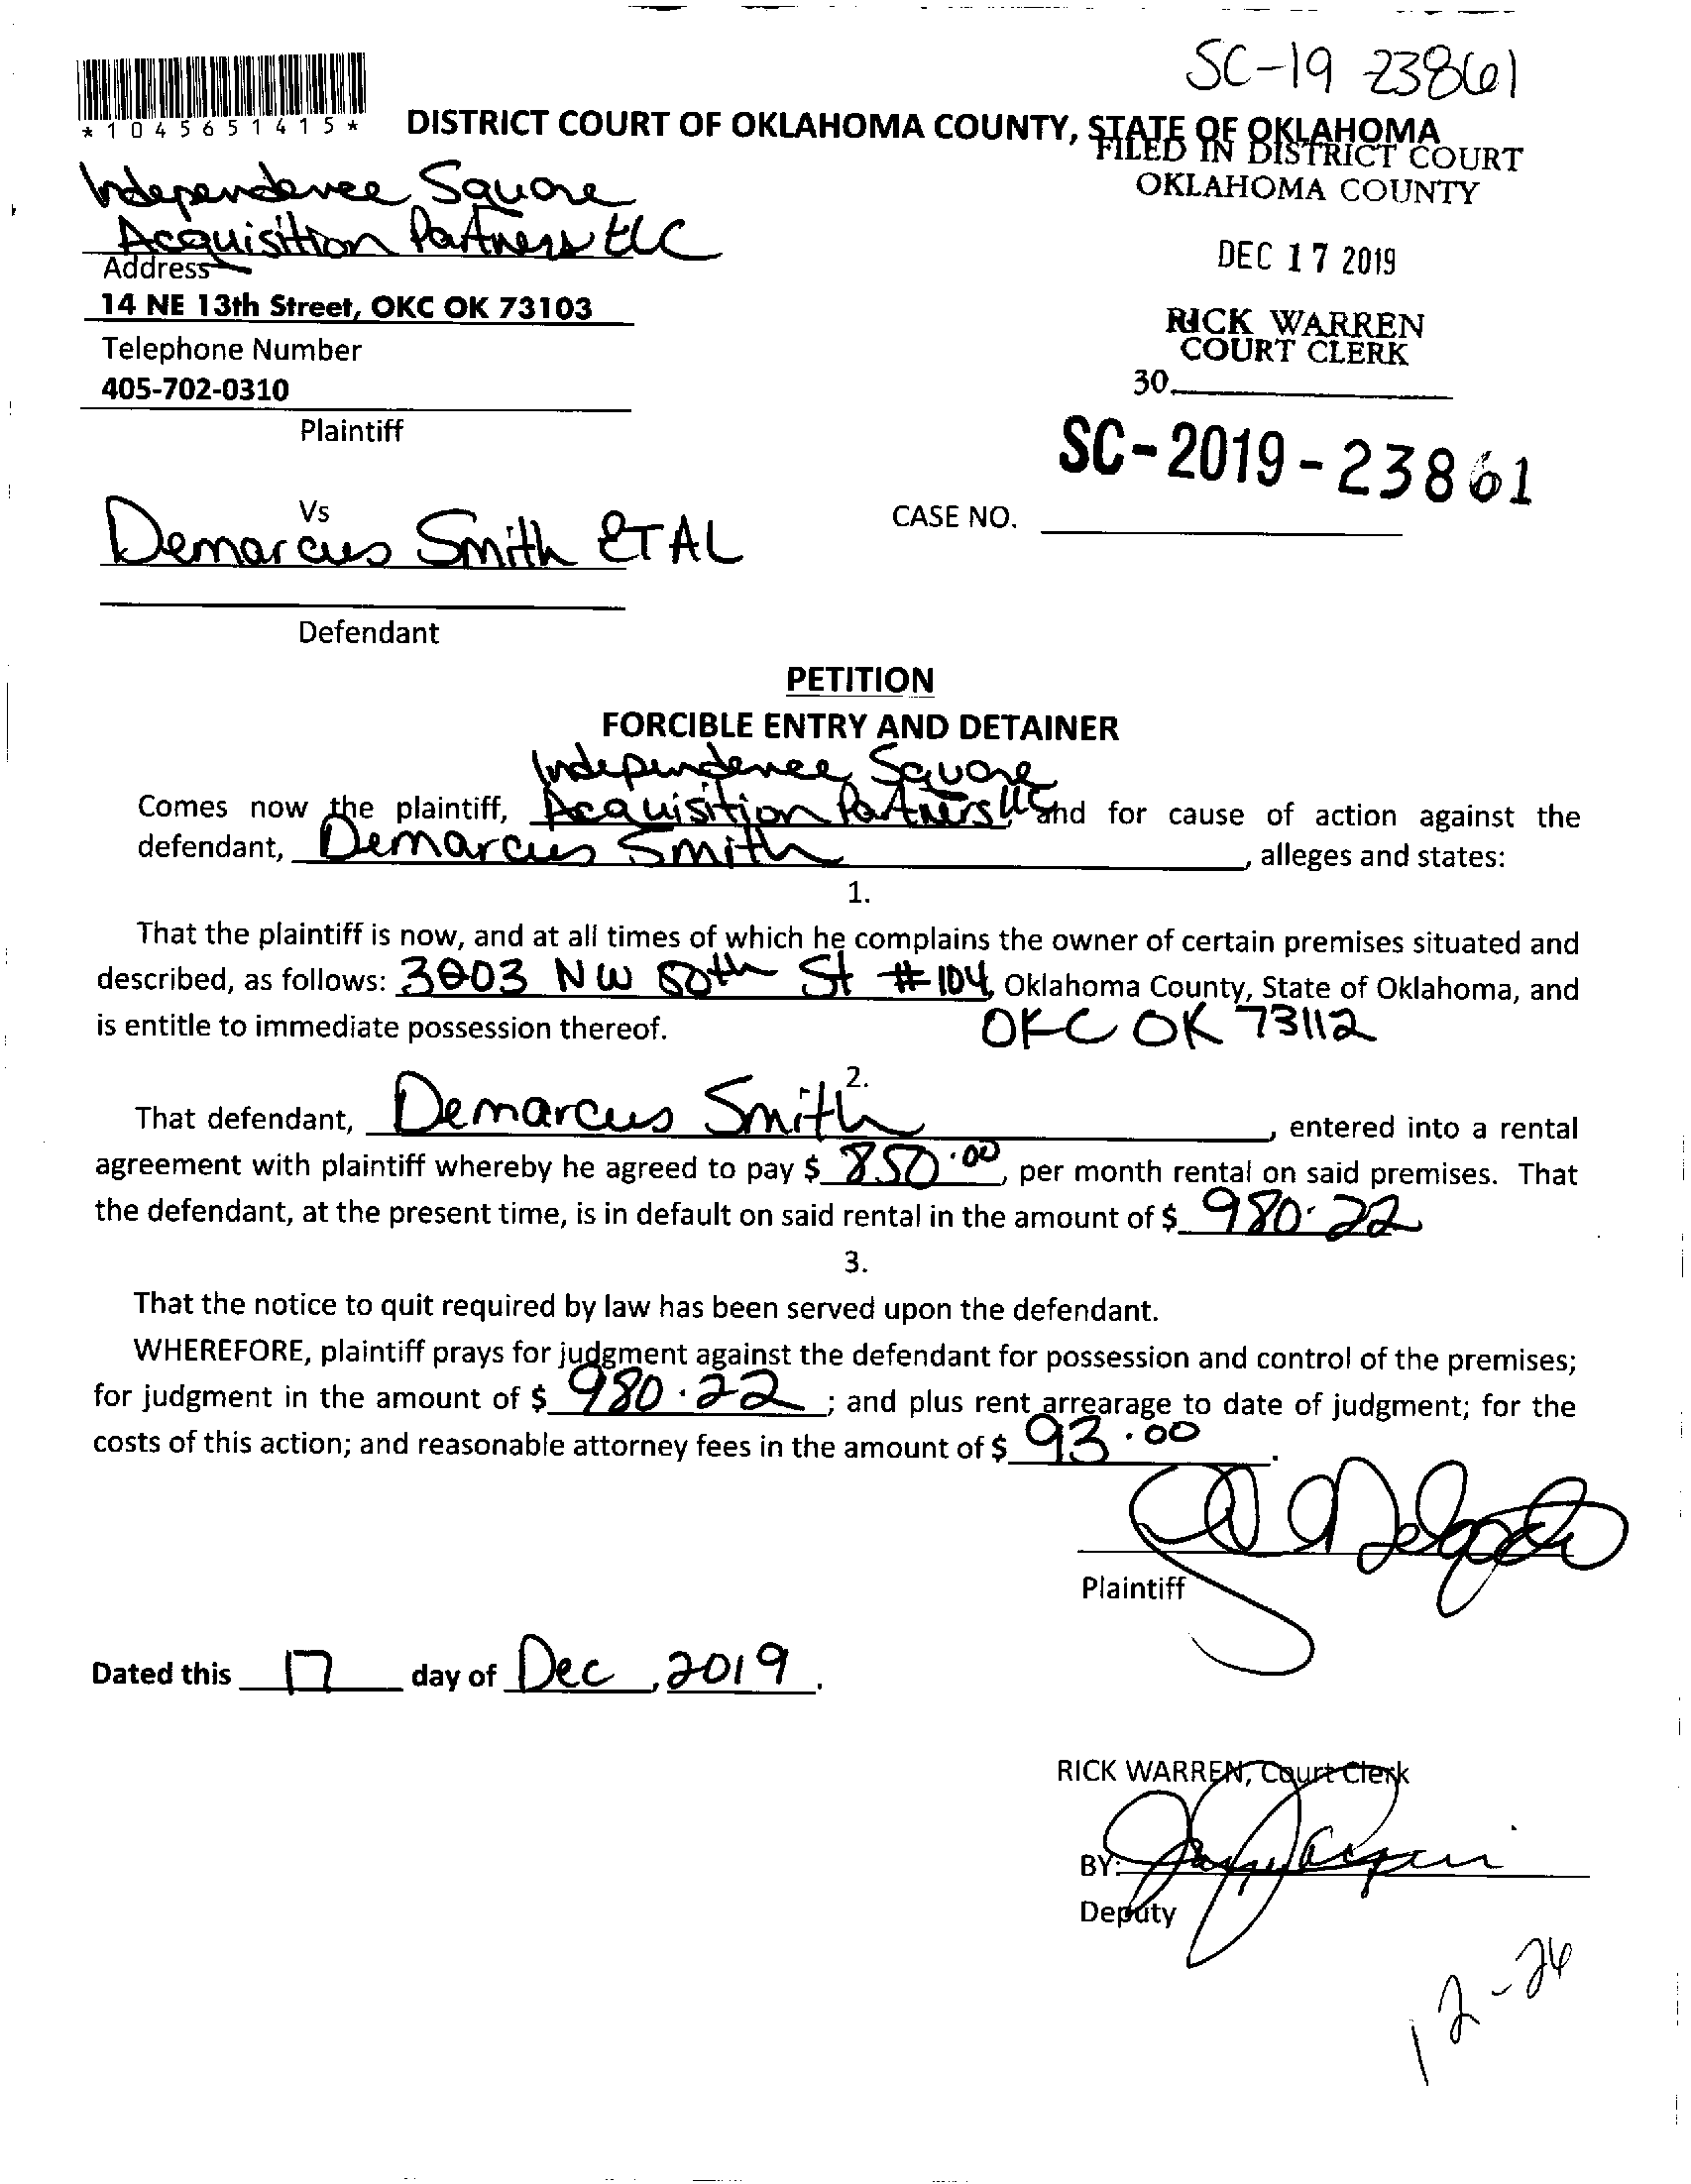 SC-19 23861
*1045651415*
DISTRICT COURT OF OKLAHOMA COUNTY, STATE OF OKLAHOMA
FILED IN DISTRICT COURT
OKLAHOMA COUNTY
Independence Square
Acquisition Partners LLC
Address
14 NE 13th Street, OKC OK 73103
Telephone Number
405-702-0310
Plaintiff
DEC 17 2019
RICK WARREN
COURT CLERK
30
SC-2019-23861
CASE NO.
Vs
Demarcus Smith ETAL
Defendant
PETITION
FORCIBLE ENTRY AND DETAINER
Independence Square
Comes now the plaintiff, Acquisition Partners LLC, and for cause of action against the
defendant, Demarcus Smith, alleges and states:
1.
That the plaintiff is now, and at all times of which he complains the owner of certain premises situated and
described, as follows: 3003 NW 50th St #104, Oklahoma County, State of Oklahoma, and
is entitle to immediate possession thereof. OKC OK 73112
2.
That defendant, Demarcus Smith, entered into a rental
agreement with plaintiff whereby he agreed to pay $ 850.00, per month rental on said premises. That
the defendant, at the present time, is in default on said rental in the amount of $ 980.22
3.
That the notice to quit required by law has been served upon the defendant.
WHEREFORE, plaintiff prays for judgment against the defendant for possession and control of the premises;
for judgment in the amount of $ 980.22; and plus rent arrearage to date of judgment; for the
costs of this action; and reasonable attorney fees in the amount of $ 93.00.
Plaintiff
Dated this 17 day of Dec, 2019.
RICK WARREN, Court Clerk
BY:
Deputy
12-26